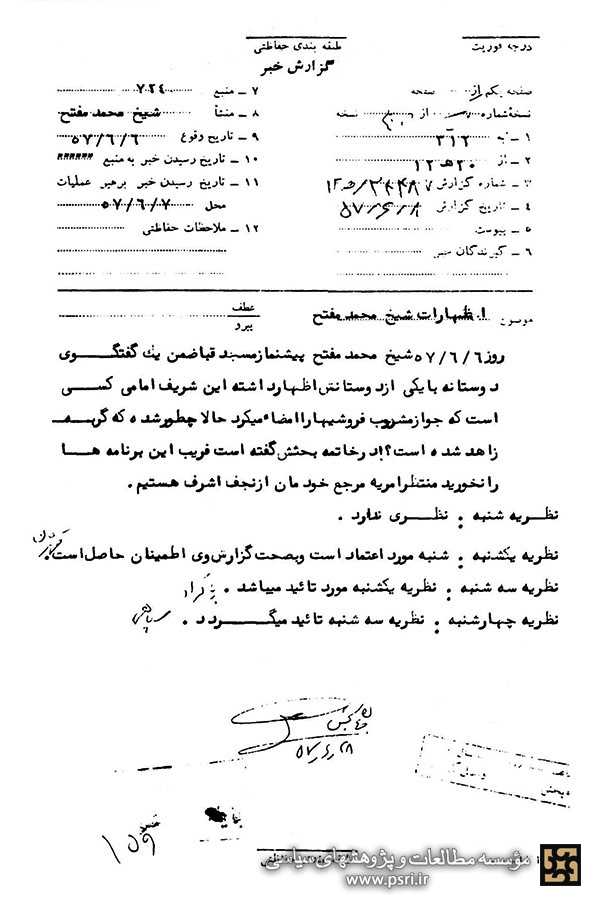 درجه فوریت
طبقه بندی حفاظتی
گزارش خبر
صفحه یکم از صفحه
نسخهٔ شماره از نسخه
۱ – به ۳۱۲
۲ – از ۲۰ هـ ۱۲
۳ – شماره گزارش
۴ – تاریخ گزارش ۵۷/۶/۸
۵ – پیوست
۶ – گیرندگان خبر
۷ – منبع ۷۲۴
۸ – منشأ شیخ محمد مفتح
۹ – تاریخ وقوع ۵۷/۶/۶
۱۰ – تاریخ رسیدن خبر به منبع ######
۱۱ – تاریخ رسیدن خبر برهبر عملیات
محل ۵۷/۶/۷
۱۲ – ملاحظات حفاظتی
موضوع اظهارات شیخ محمد مفتح
عطف
پیرو
روز ۵۷/۶/۶ شیخ محمد مفتح پیشنماز مسجد قبا ضمن یک گفتگوی
دوستانه با یکی از دوستانش اظهار داشته این شریف امامی کسی
است که جواز مشروب فروشیها را امضاء میکرد حالا چطور شده که گربه
زاهد شده است؟! در خاتمه بحثش گفته است فریب این برنامه ها
را نخورید منتظر امریه مرجع خودمان از نجف اشرف هستیم.
نظریه شنبه : نظری ندارد .
نظریه یکشنبه : شنبه مورد اعتماد است وبصحت گزارش وی اطمینان حاصل است.
نظریه سه شنبه : نظریه یکشنبه مورد تائید میباشد .
نظریه چهارشنبه : نظریه سه شنبه تائید میگردد .
۱۵۹
مؤسسه مطالعات و پژوهشهای سیاسی
www.psri.ir